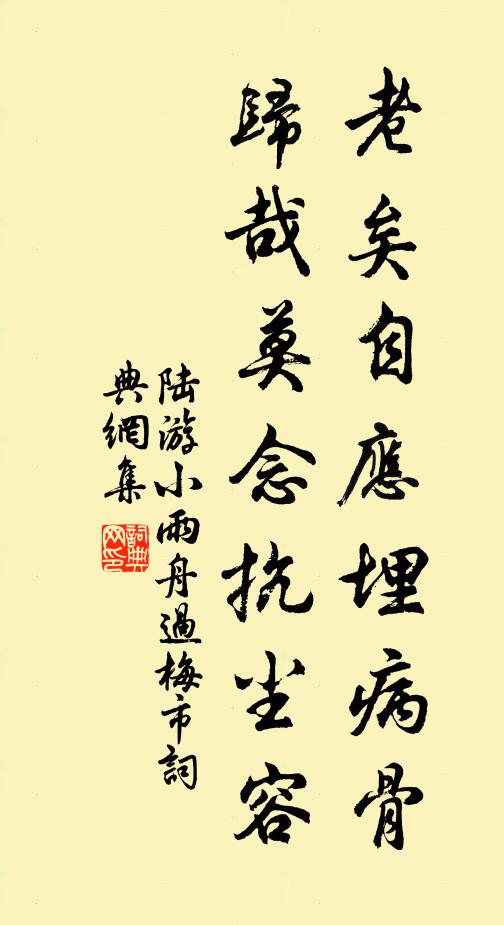 老矣自應埋病骨
歸哉莫念抗尘容
陸游小雨舟過梅市詞
典網集
詞典
网印